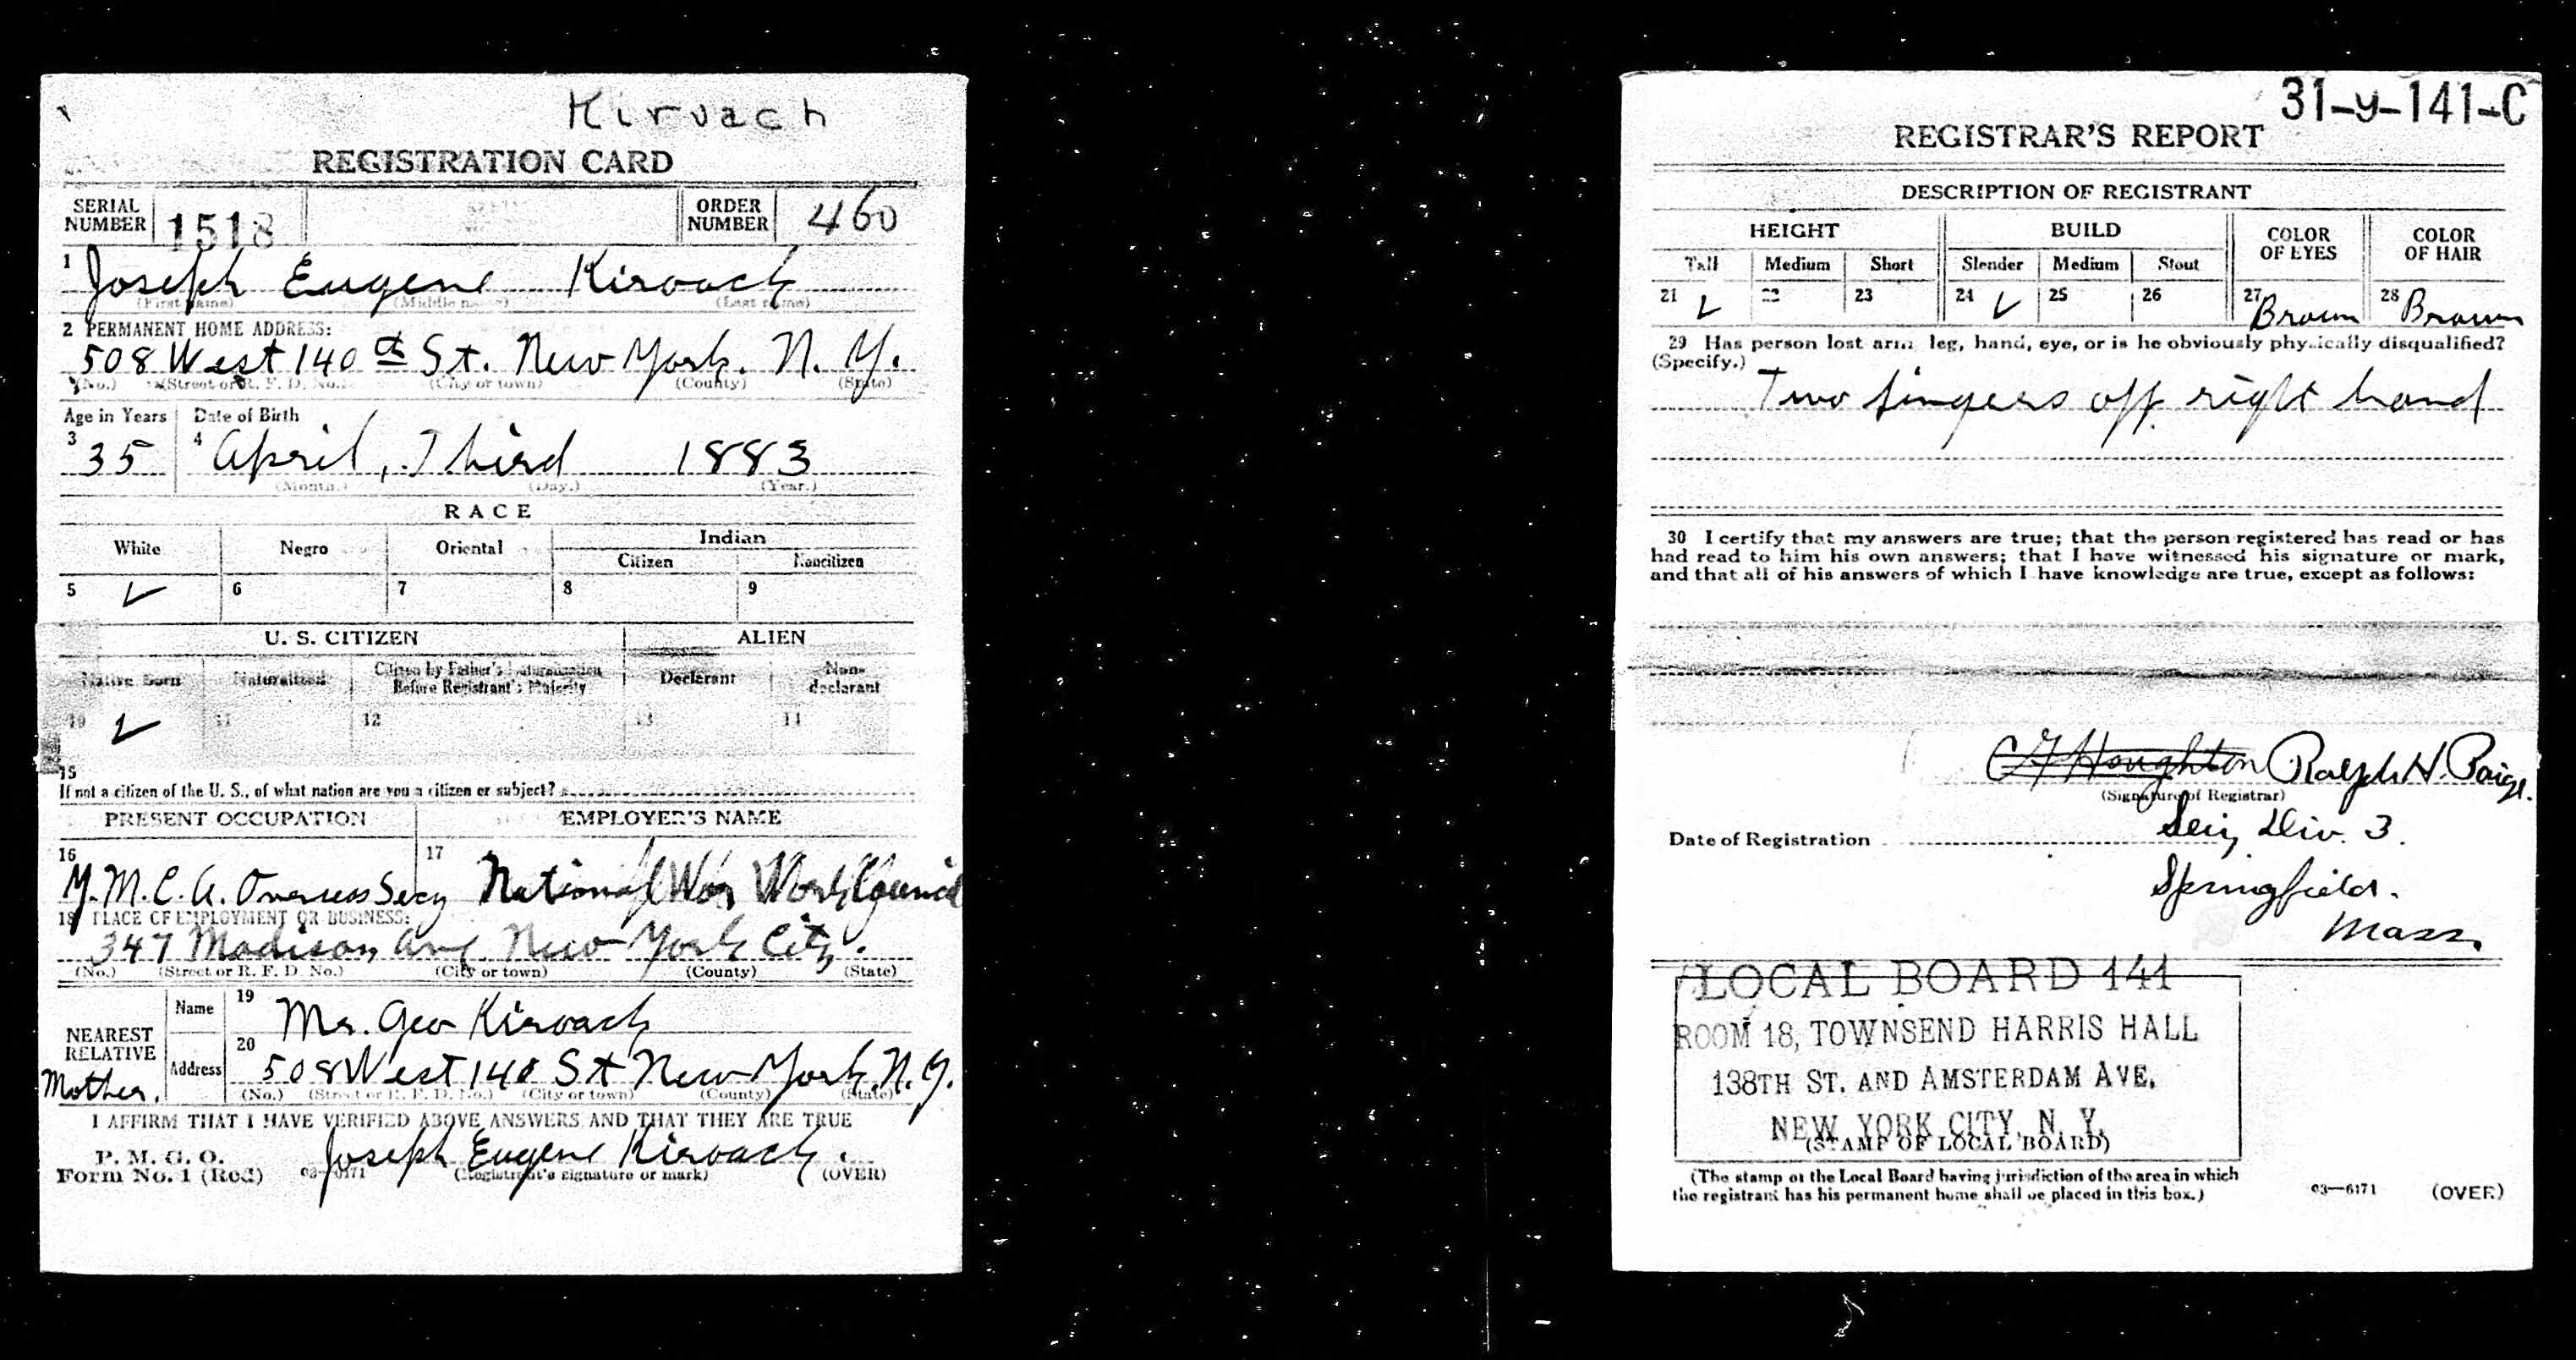 Kirvach
REGISTRATION CARD
SERIAL NUMBER 1518 ORDER NUMBER 460
1 Joseph Eugene Kirvach
(First name) (Middle name) (Last name)
2 PERMANENT HOME ADDRESS:
508 West 140th St. New York. N. Y.
(No.) (Street or R. F. D. No.) (City or town) (County) (State)
Age in Years Date of Birth
3 35 4 April, Third 1883
(Month.) (Day.) (Year.)
RACE
White Negro Oriental Indian
Citizen Noncitizen
5 6 7 8 9
U. S. CITIZEN ALIEN
Native Born Naturalized Citizen by Father's Naturalization Before Registrant's Majority Declarant Non-declarant
10 11 12 13 14
15
If not a citizen of the U. S., of what nation are you a citizen or subject?
PRESENT OCCUPATION EMPLOYER'S NAME
16 Y.M.C.A. Overseas Secy 17 National War Work Council
18 PLACE OF EMPLOYMENT OR BUSINESS:
347 Madison Ave. New York City.
(No.) (Street or R. F. D. No.) (City or town) (County) (State)
NEAREST RELATIVE Name 19 Geo Kirvach
Mother. Address 20 508 West 140 St New York. N. Y.
(No.) (Street or R. F. D. No.) (City or town) (County) (State)
I AFFIRM THAT I HAVE VERIFIED ABOVE ANSWERS AND THAT THEY ARE TRUE
P. M. G. O.
Form No. 1 (Red) 03—6171 Joseph Eugene Kirvach.
(Registrant's signature or mark) (OVER)
31-9-141-C
REGISTRAR'S REPORT
DESCRIPTION OF REGISTRANT
HEIGHT BUILD COLOR OF EYES COLOR OF HAIR
Tall Medium Short Slender Medium Stout
21 22 23 24 25 26 27 Brown 28 Brown
29 Has person lost arm, leg, hand, eye, or is he obviously physically disqualified?
(Specify.)
Two fingers off right hand
30 I certify that my answers are true; that the person registered has read or has
had read to him his own answers; that I have witnessed his signature or mark,
and that all of his answers of which I have knowledge are true, except as follows:
Houghton Ralph H. Paige.
(Signature of Registrar)
Date of Registration Div. 3.
Springfield.
Mass.
LOCAL BOARD 141
ROOM 18, TOWNSEND HARRIS HALL
138TH ST. AND AMSTERDAM AVE,
NEW YORK CITY, N. Y.
(STAMP OF LOCAL BOARD)
(The stamp of the Local Board having jurisdiction of the area in which
the registrant has his permanent home shall be placed in this box.)
03—6171 (OVER)